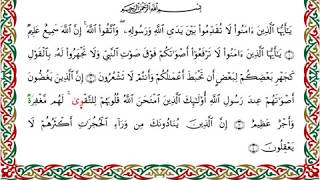 بسم الله الرحمن الرحيم
يَٰٓأَيُّهَا ٱلَّذِينَ ءَامَنُوا۟ لَا تُقَدِّمُوا۟ بَيْنَ يَدَىِ ٱللَّهِ وَرَسُولِهِۦ ۖ وَٱتَّقُوا۟ ٱللَّهَ ۚ إِنَّ ٱللَّهَ سَمِيعٌ عَلِيمٌ
يَٰٓأَيُّهَا ٱلَّذِينَ ءَامَنُوا۟ لَا تَرْفَعُوٓا۟ أَصْوَٰتَكُمْ فَوْقَ صَوْتِ ٱلنَّبِىِّ وَلَا تَجْهَرُوا۟ لَهُۥ بِٱلْقَوْلِ
كَجَهْرِ بَعْضِكُمْ لِبَعْضٍ أَن تَحْبَطَ أَعْمَٰلُكُمْ وَأَنتُمْ لَا تَشْعُرُونَ إِنَّ ٱلَّذِينَ يَغُضُّونَ
أَصْوَٰتَهُمْ عِندَ رَسُولِ ٱللَّهِ أُو۟لَٰٓئِكَ ٱلَّذِينَ ٱمْتَحَنَ ٱللَّهُ قُلُوبَهُمْ لِلتَّقْوَىٰ ۚ لَهُم مَّغْفِرَةٌ
وَأَجْرٌ عَظِيمٌ إِنَّ ٱلَّذِينَ يُنَادُونَكَ مِن وَرَآءِ ٱلْحُجُرَٰتِ أَكْثَرُهُمْ لَا
يَعْقِلُونَ